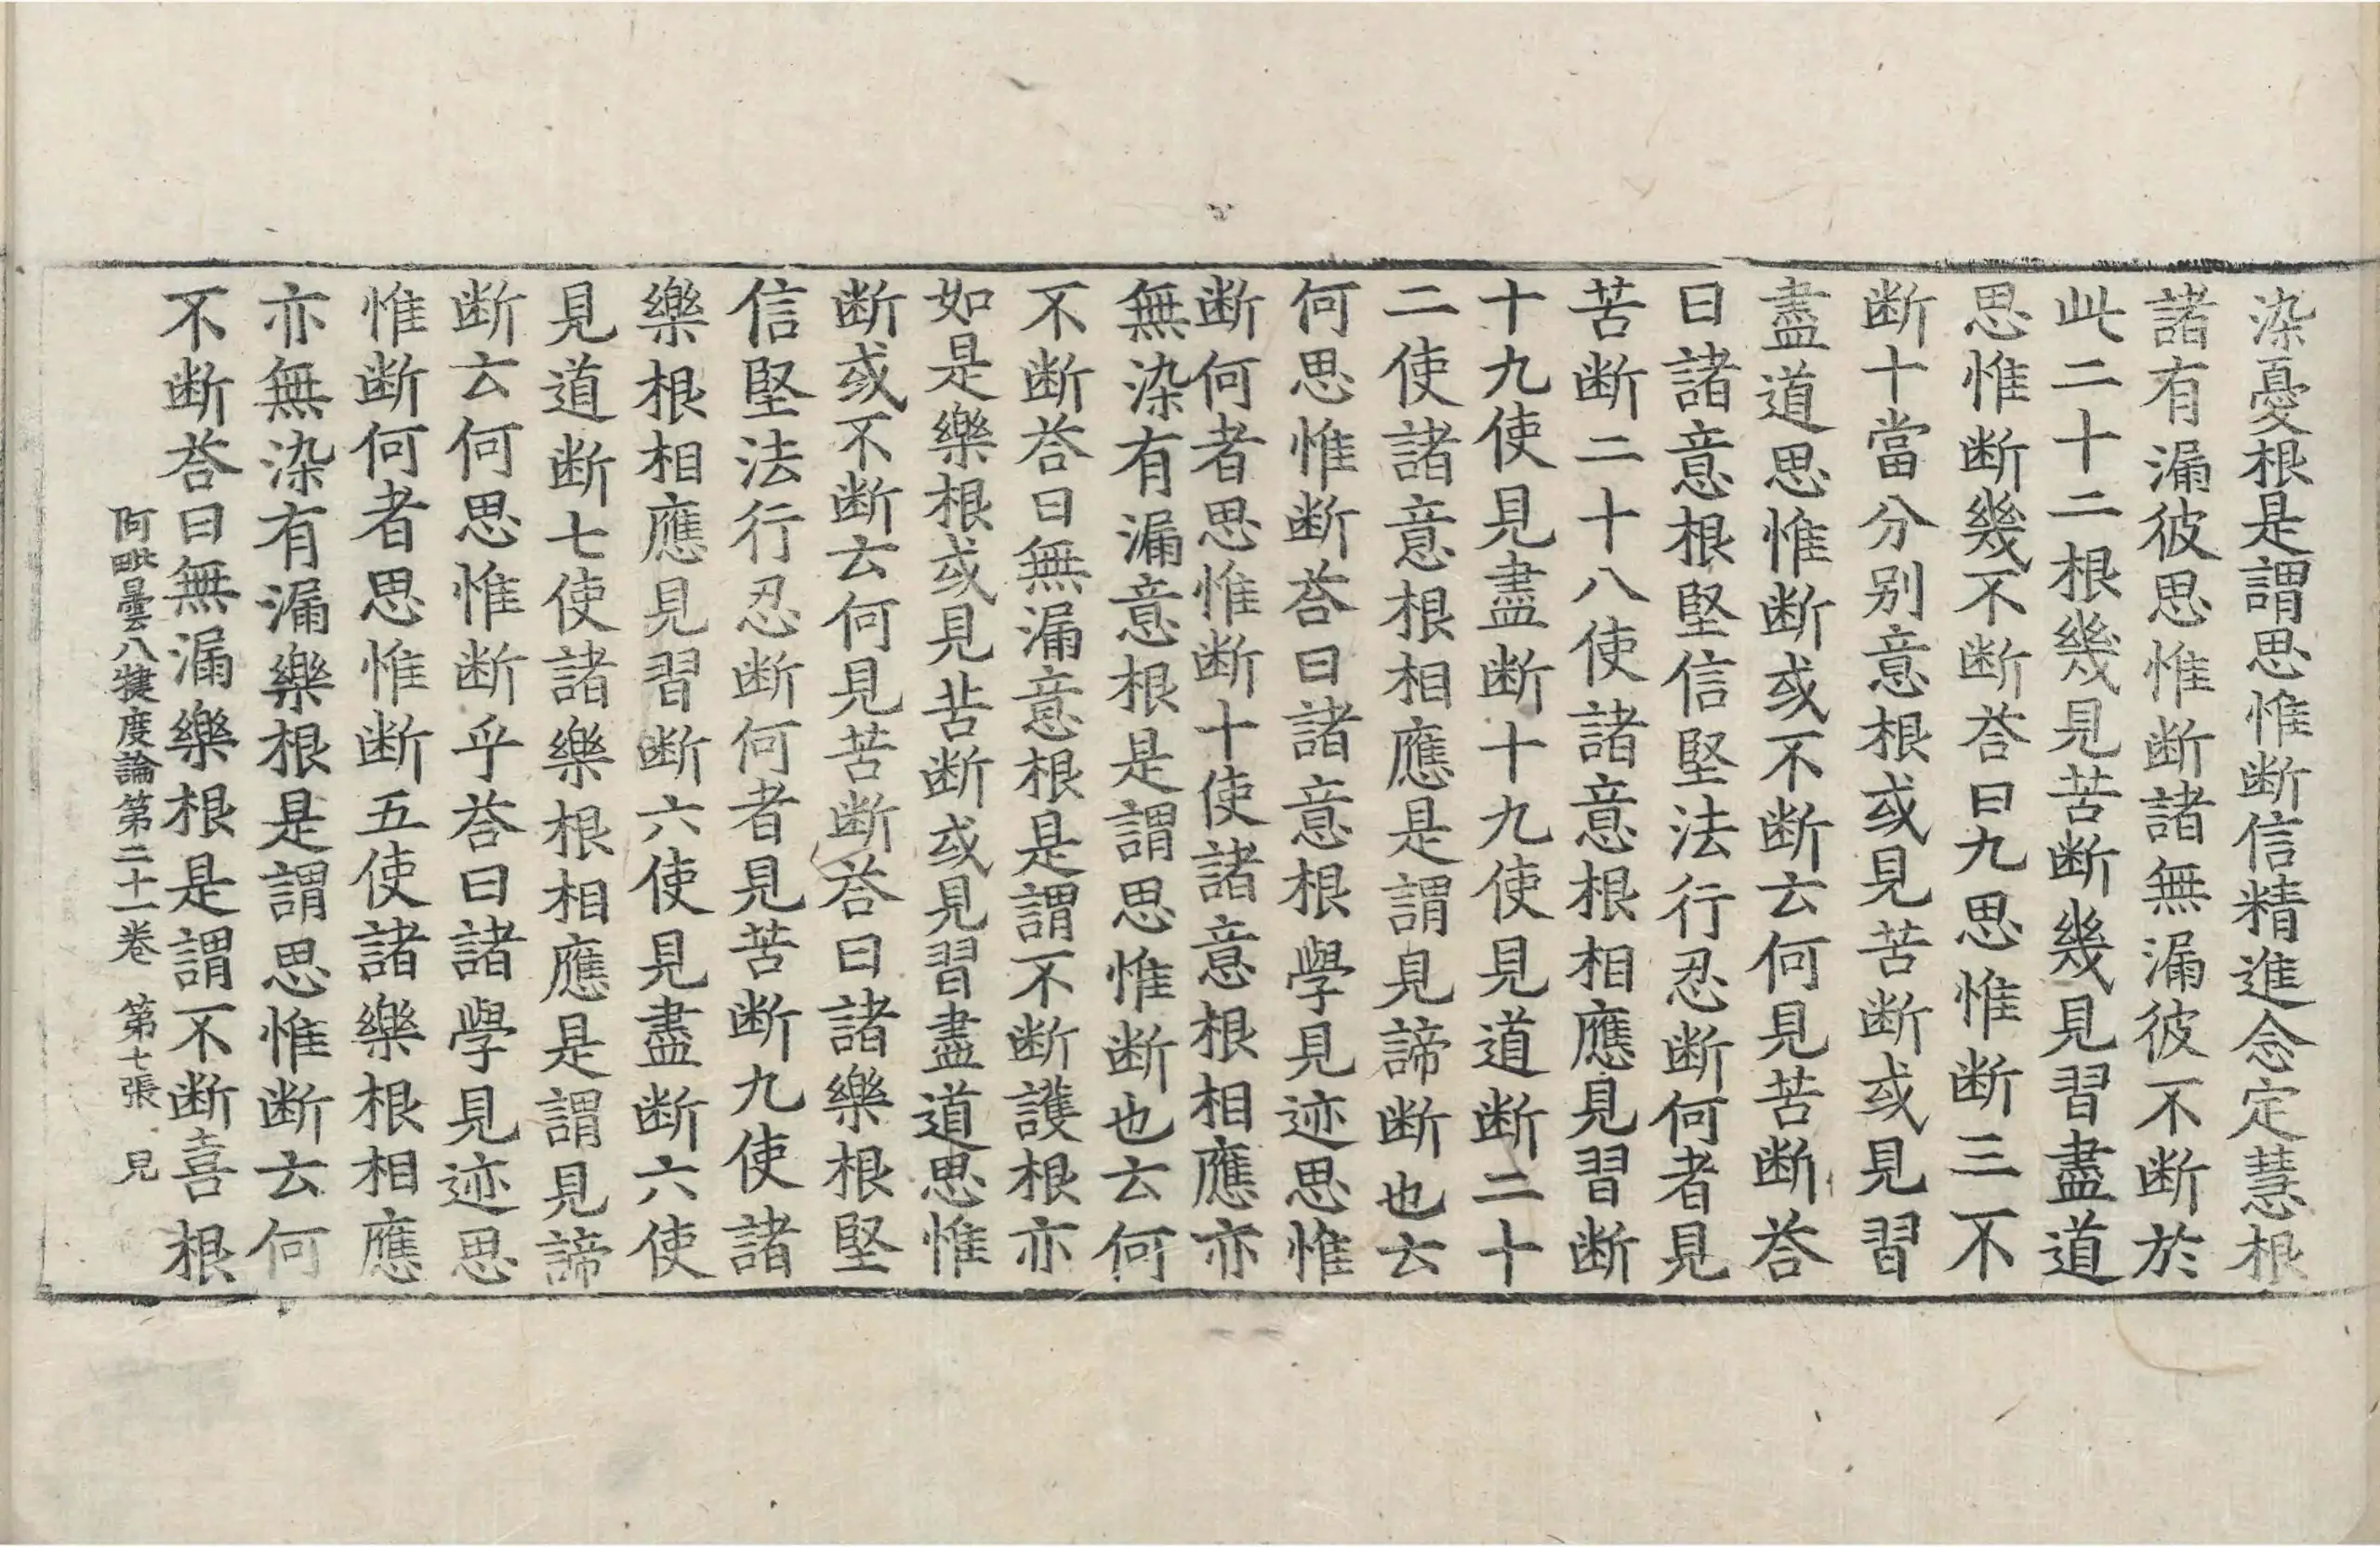 染憂根是謂思惟断信精進念定慧根
諸有漏彼思惟断諸無漏彼不断於
此二十二根幾見苦断幾見習盡道
思惟断幾不断荅曰九思惟断三不
断十當分別意根或見苦断或見習
盡道思惟断或不断云何見苦断荅
曰諸意根堅信堅法行忍断何者見
苦断二十八使諸意根相應見習断
十九使見盡断十九使見道断二十
二使諸意根相應是謂見諦断也云
何思惟断荅曰諸意根學見迹思惟
断何者思惟断十使諸意根相應亦
無染有漏意根是謂思惟断也云何
不断荅曰無漏意根是謂不断護根亦
如是樂根或見苦断或見習盡道思惟
断或不断云何見苦断荅曰諸樂根堅
信堅法行忍断何者見苦断九使諸
樂根相應見習断六使見盡断六使
見道断七使諸樂根相應是謂見諦
断云何思惟断乎荅曰諸學見迹思
惟断何者思惟断五使諸樂根相應
亦無染有漏樂根是謂思惟断云何
不断荅曰無漏樂根是謂不断喜根
阿毗曇八犍度論第二十一卷 第七張 見